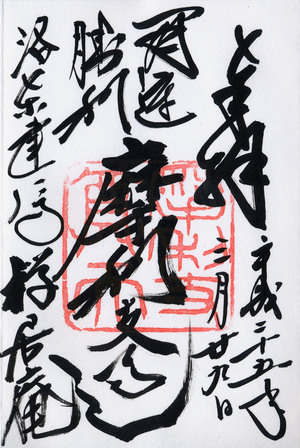 奉拝
平成二十五年
三月廿九日
開運
勝利
摩利支尊天
洛東建仁寺 禅居庵